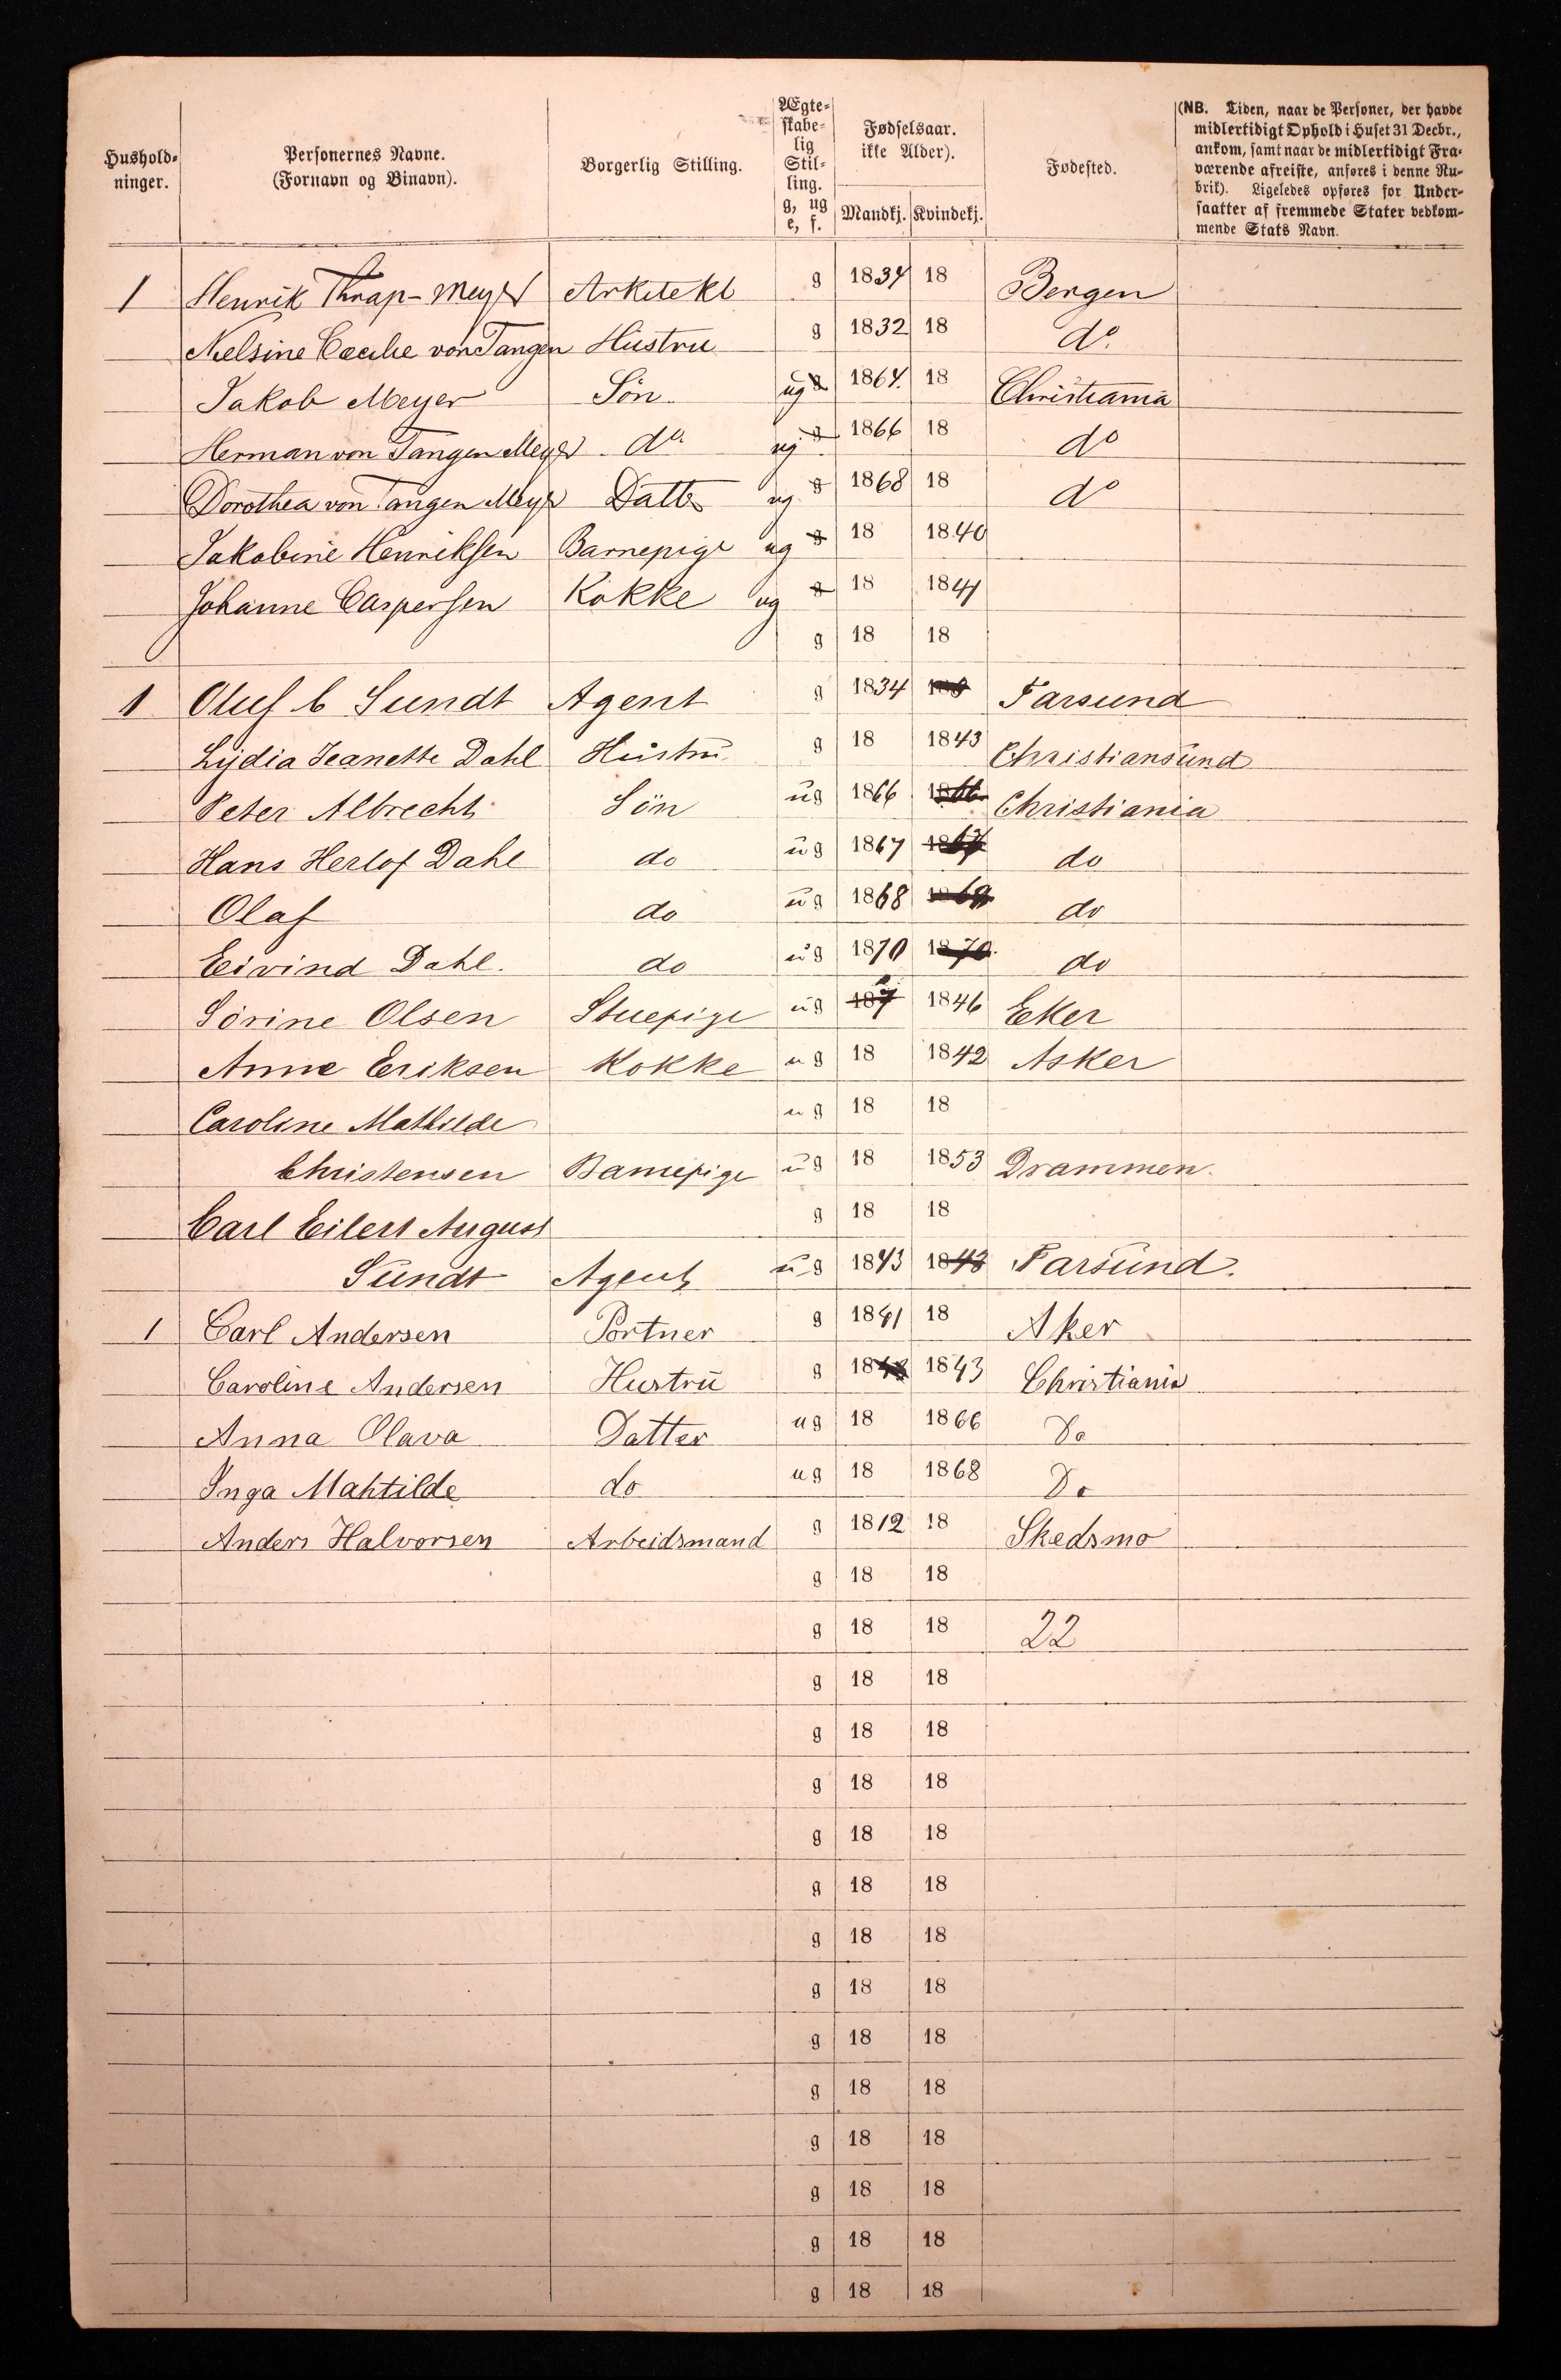 Hushold-
ninger.
Personernes Navne.
(Fornavn og Binavn).
Borgerlig Stilling.
Ægte-
skabe-
lig
Stil-
ling.
g, ug
e, f.
Fødselsaar.
ikke Alder).
Mandkj. Kvindekj.
Fødested.
(NB. Tiden, naar de Personer, der havde
midlertidigt Ophold i Huset 31 Decbr.,
ankom, samt naar de midlertidigt Fra-
værende afreiste, anføres i denne Ru-
brik). Ligeledes opføres for Under-
saatter af fremmede Stater vedkom-
mende Stats Navn.
1 Henrik Thrap-Meyer Arkitekt g 1834 18 Bergen
Nelsine Cæcilie von Tangen Hustru g 1832 18 do.
Jakob Meyer Sön ug 1864. 18 Christiania
Herman von Tangen Meyer do. ug 1866 18 do
Dorothea von Tangen Meyer Datter ug 1868 18 do
Jakobine Henriksen Barnepige ug 18 1840
Johanne Caspersen Kokke ug 18 1841
g 18 18
1 Oluf C Sundt Agent g 1834 Farsund
Lydia Jeanette Dahl Hustru g 18 1843 Christiansund
Peter Albrecht Sön ug 1866 1866 Christiania
Hans Herlof Dahl do ug 1867 1867 do
Olaf do ug 1868 1869 do
Eivind Dahl. do ug 1870 1870. do
Sörine Olsen Stuepige ug 187 1846 Eker
Anne Eriksen Kokke ug 18 1842 Asker
Caroline Mathilde ug 18 18
Christensen Barnepige ug 18 1853 Drammen.
Carl Eilert August g 18 18
Sundt Agent ug 1843 1843 Farsund.
1 Carl Andersen Portner g 1841 18 Aker
Caroline Andersen Hustru g 1843 1843 Christiania
Anna Olava Datter ug 18 1866 Do
Inga Mahtilde do ug 18 1868 Do
Anders Halvorsen Arbeidsmand g 1812 18 Skedsmo
g 18 18
g 18 18 22
g 18 18
g 18 18
g 18 18
g 18 18
g 18 18
g 18 18
g 18 18
g 18 18
g 18 18
g 18 18
g 18 18
g 18 18
g 18 18